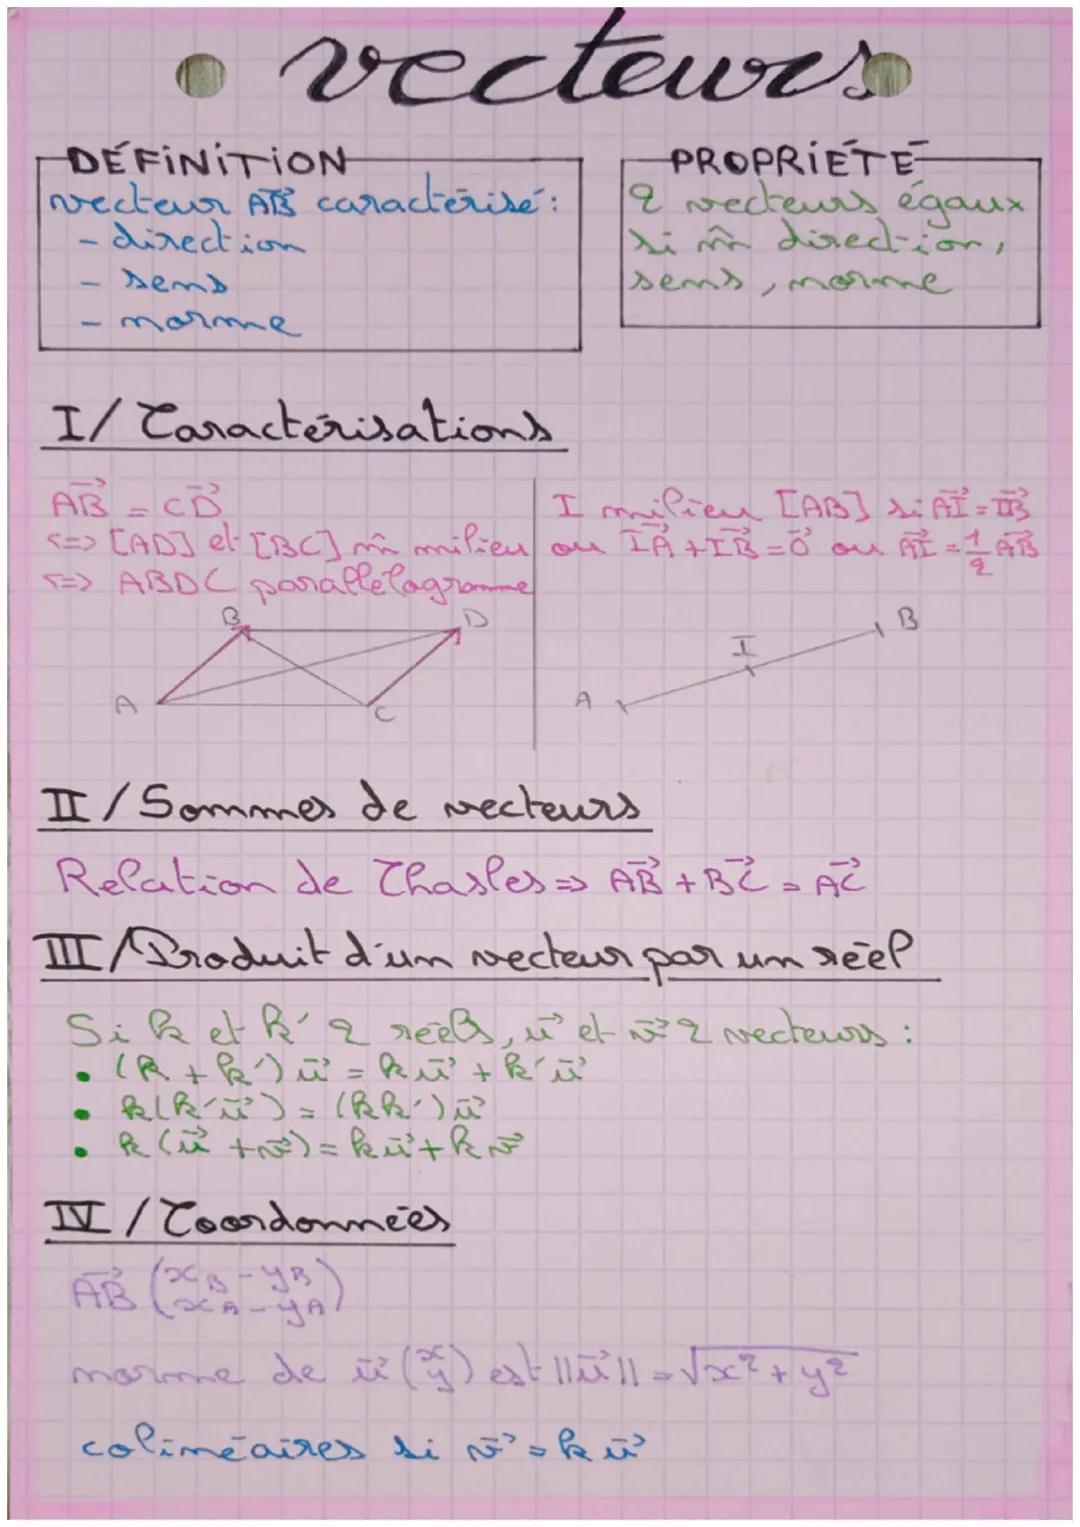 vecteurs
DÉFINITION
vecteur AB⃗ caractérisé :
- direction
- sens
- norme
PROPRIÉTÉ
2 vecteurs égaux
si m̂ direction,
sens, norme
I/ Caractérisations
AB⃗ = CD⃗
<=> [AD] et [BC] m̂ milieu
<=> ABDC parallélogramme
B
D
A
C
I milieu [AB] si AI⃗ = IB⃗
ou IA⃗ + IB⃗ = 0⃗ ou AI⃗ = 1/2 AB⃗
B
I
A
II / Sommes de vecteurs
Relation de Chasles => AB⃗ + BC⃗ = AC⃗
III / Produit d'un vecteur par un réel
Si k et k' 2 réels, u⃗ et v⃗ 2 vecteurs :
• (k + k') u⃗ = k u⃗ + k' u⃗
• k(k' u⃗) = (kk') u⃗
• k (u⃗ + v⃗) = k u⃗ + k v⃗
IV / Coordonnées
AB⃗ (xB - yB
xA - yA)
norme de u⃗ (x y) est ||u⃗|| = √x² + y²
colinéaires si v⃗ = k u⃗